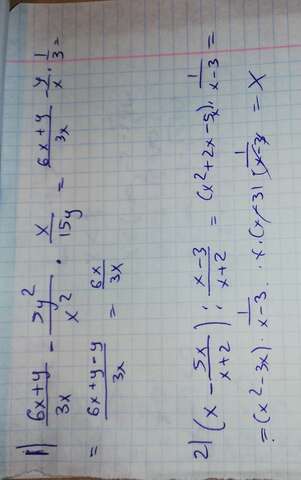 1) (6x+y)/3x - 5y²/x² · x/15y = (6x+y)/3x - y/x · 1/3 =
= (6x+y-y)/3x = 6x/3x
2) (x - 5x/(x+2)) : (x-3)/(x+2) = (x²+2x-5x) · 1/(x-3) =
= (x²-3x) · 1/(x-3) · x·(x-3) 1/(x-3) = x